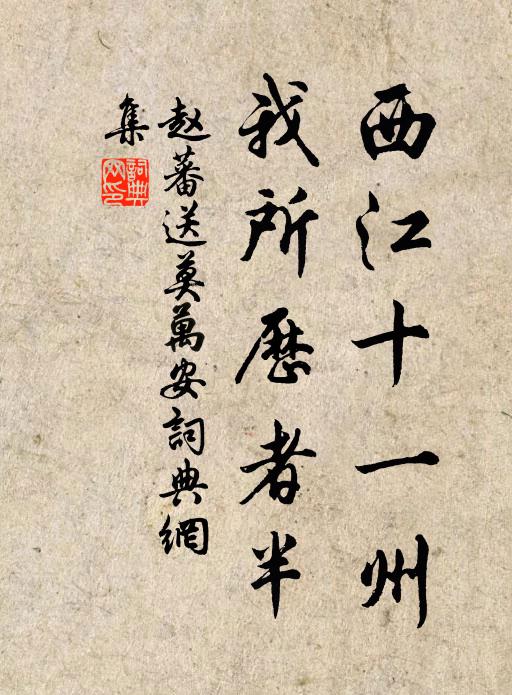 西江十一州
我所歷者半
赵蕃送莫萬安詞典網
集
詞典網印